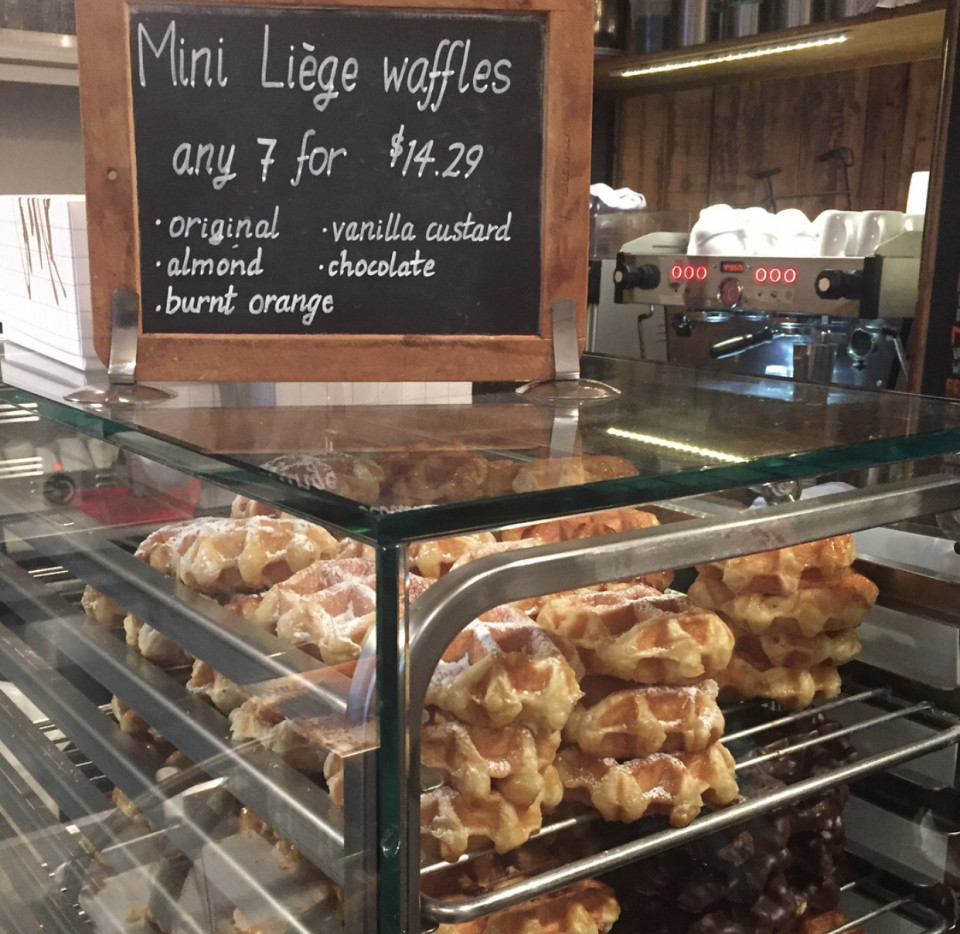 Mini Liège waffles
any 7 for $14.29
· original · vanilla custard
· almond · chocolate
· burnt orange
000 000